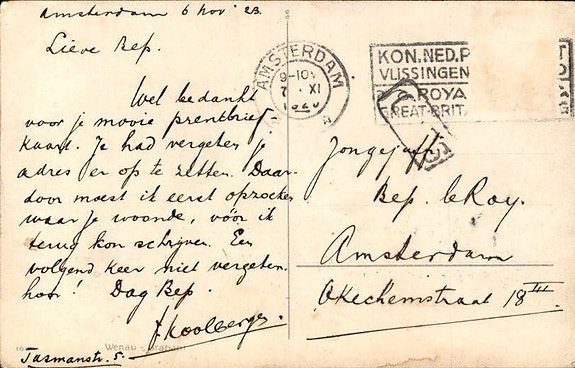 Amsterdam 6 Nov '23.
Lieve Bep.
Wel bedankt
voor je mooie prentbrief-
kaart. Je had vergeten je
adres er op te zetten. Daar-
door moest ik eerst opzoeken
waar je woonde, vóór ik
terug kon schrijven. Een
volgend keer niet vergeten
hoor! Dag Bep.
J. Koolbergen
Tasmanstr. 5.
AMSTERDAM
9-10V
7 XI
KON.NED.P
VLISSINGEN
ROYA
GREAT-BRIT.
Jongejuffr.
Bep. le Roy.
Amsterdam
Okechemstraat 18 III